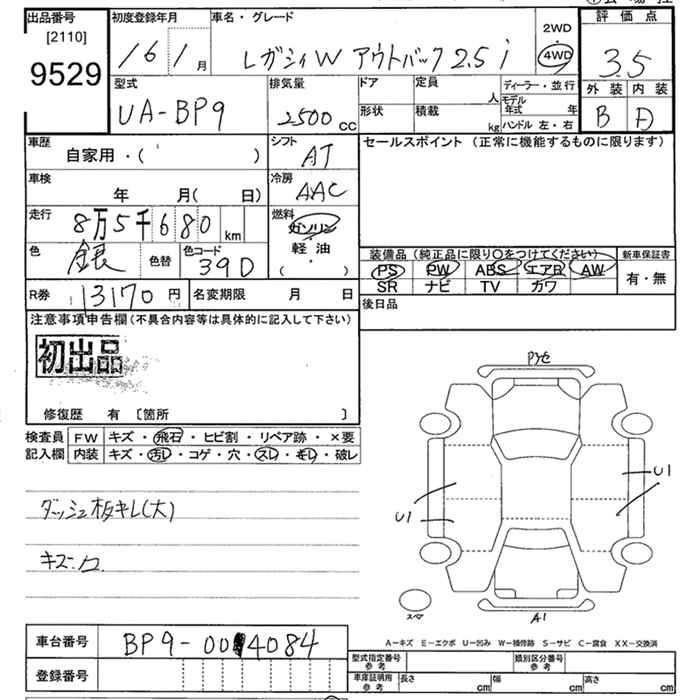 出品番号 初度登録年月 車名・グレード 評価点
[2110]
9529
16 1 月 レガシィW アウトバック2.5i 2WD 4WD 3.5
型式 排気量 ドア 定員 ディーラー・並行 外装 内装
UA-BP9 2500 cc 人 モデル年式 年 B D
形状 積載 kg ハンドル 左・右
車歴 シフト セールスポイント (正常に機能するものに限ります)
自家用・( ) AT
車検 冷房
年 月( 日) AAC
走行 燃料
8万5千680 km ガソリン・軽油・( )
色 色替 色コード 装備品(純正品に限り○をつけてください) 新車保証書
銀 39D PS PW ABS エアB AW 有・無
SR ナビ TV カワ
R券 13170円 名変期限 月 日 後日品
注意事項申告欄(不具合内容等は具体的に記入して下さい)
初出品
修復歴 有 〔箇所 〕
検査員 FW キズ・飛石・ヒビ割・リペア跡・×要
記入欄 内装 キズ・汚レ・コゲ・穴・スレ・キレ・破レ
ダッシュ板キレ(大)
U1
U1
A1
A−キズ E−エクボ U−凹み W−補修跡 S−サビ C−腐食 XX−交換済
車台番号 BP9-004084
登録番号
型式指定番号 参考 類別区分番号 参考
車庫証明用 参考 長さ cm 幅 cm 高さ cm